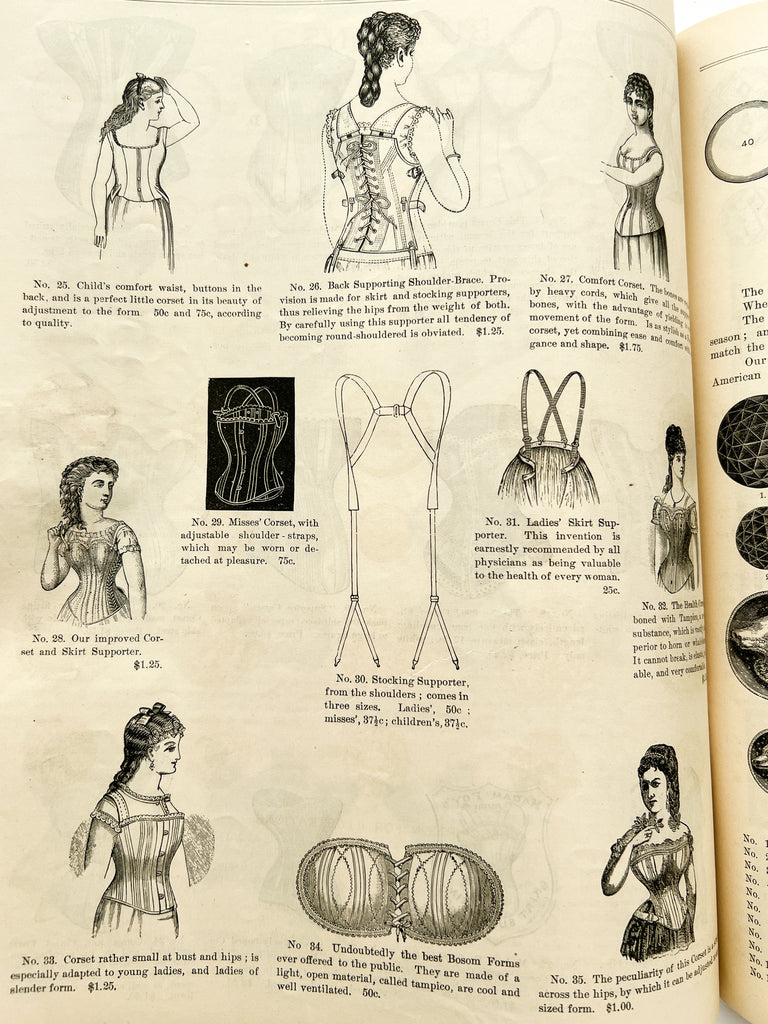 No. 25. Child's comfort waist, buttons in the
back, and is a perfect little corset in its beauty of
adjustment to the form. 50c and 75c, according
to quality.
No. 26. Back Supporting Shoulder-Brace. Pro-
vision is made for skirt and stocking supporters,
thus relieving the hips from the weight of both.
By carefully using this supporter all tendency of
becoming round-shouldered is obviated. $1.25.
No. 27. Comfort Corset. The bones are
by heavy cords, which give all the
bones, with the advantage of yielding
movement of the form. Is as stylish as a
corset, yet combining ease and comfort with
gance and shape. $1.75.
No. 29. Misses' Corset, with
adjustable shoulder-straps,
which may be worn or de-
tached at pleasure. 75c.
No. 31. Ladies' Skirt Sup-
porter. This invention is
earnestly recommended by all
physicians as being valuable
to the health of every woman.
25c.
No. 28. Our improved Cor-
set and Skirt Supporter.
$1.25.
No. 30. Stocking Supporter,
from the shoulders; comes in
three sizes. Ladies', 50c;
misses', 37½c; children's, 37½c.
No. 32. The Health
boned with Tampico, a
substance, which is
perior to horn or
It cannot break, is
able, and very
No. 33. Corset rather small at bust and hips; is
especially adapted to young ladies, and ladies of
slender form. $1.25.
No 34. Undoubtedly the best Bosom Forms
ever offered to the public. They are made of a
light, open material, called tampico, are cool and
well ventilated. 50c.
No. 35. The peculiarity of this Corset is
across the hips, by which it can be adjusted
sized form. $1.00.
40
The
Whe
The
season; an
match the
Our
American
1.
2
No. 1
No. 2
No.
No.
No.
No.
No.
No.
No.
No.
No.